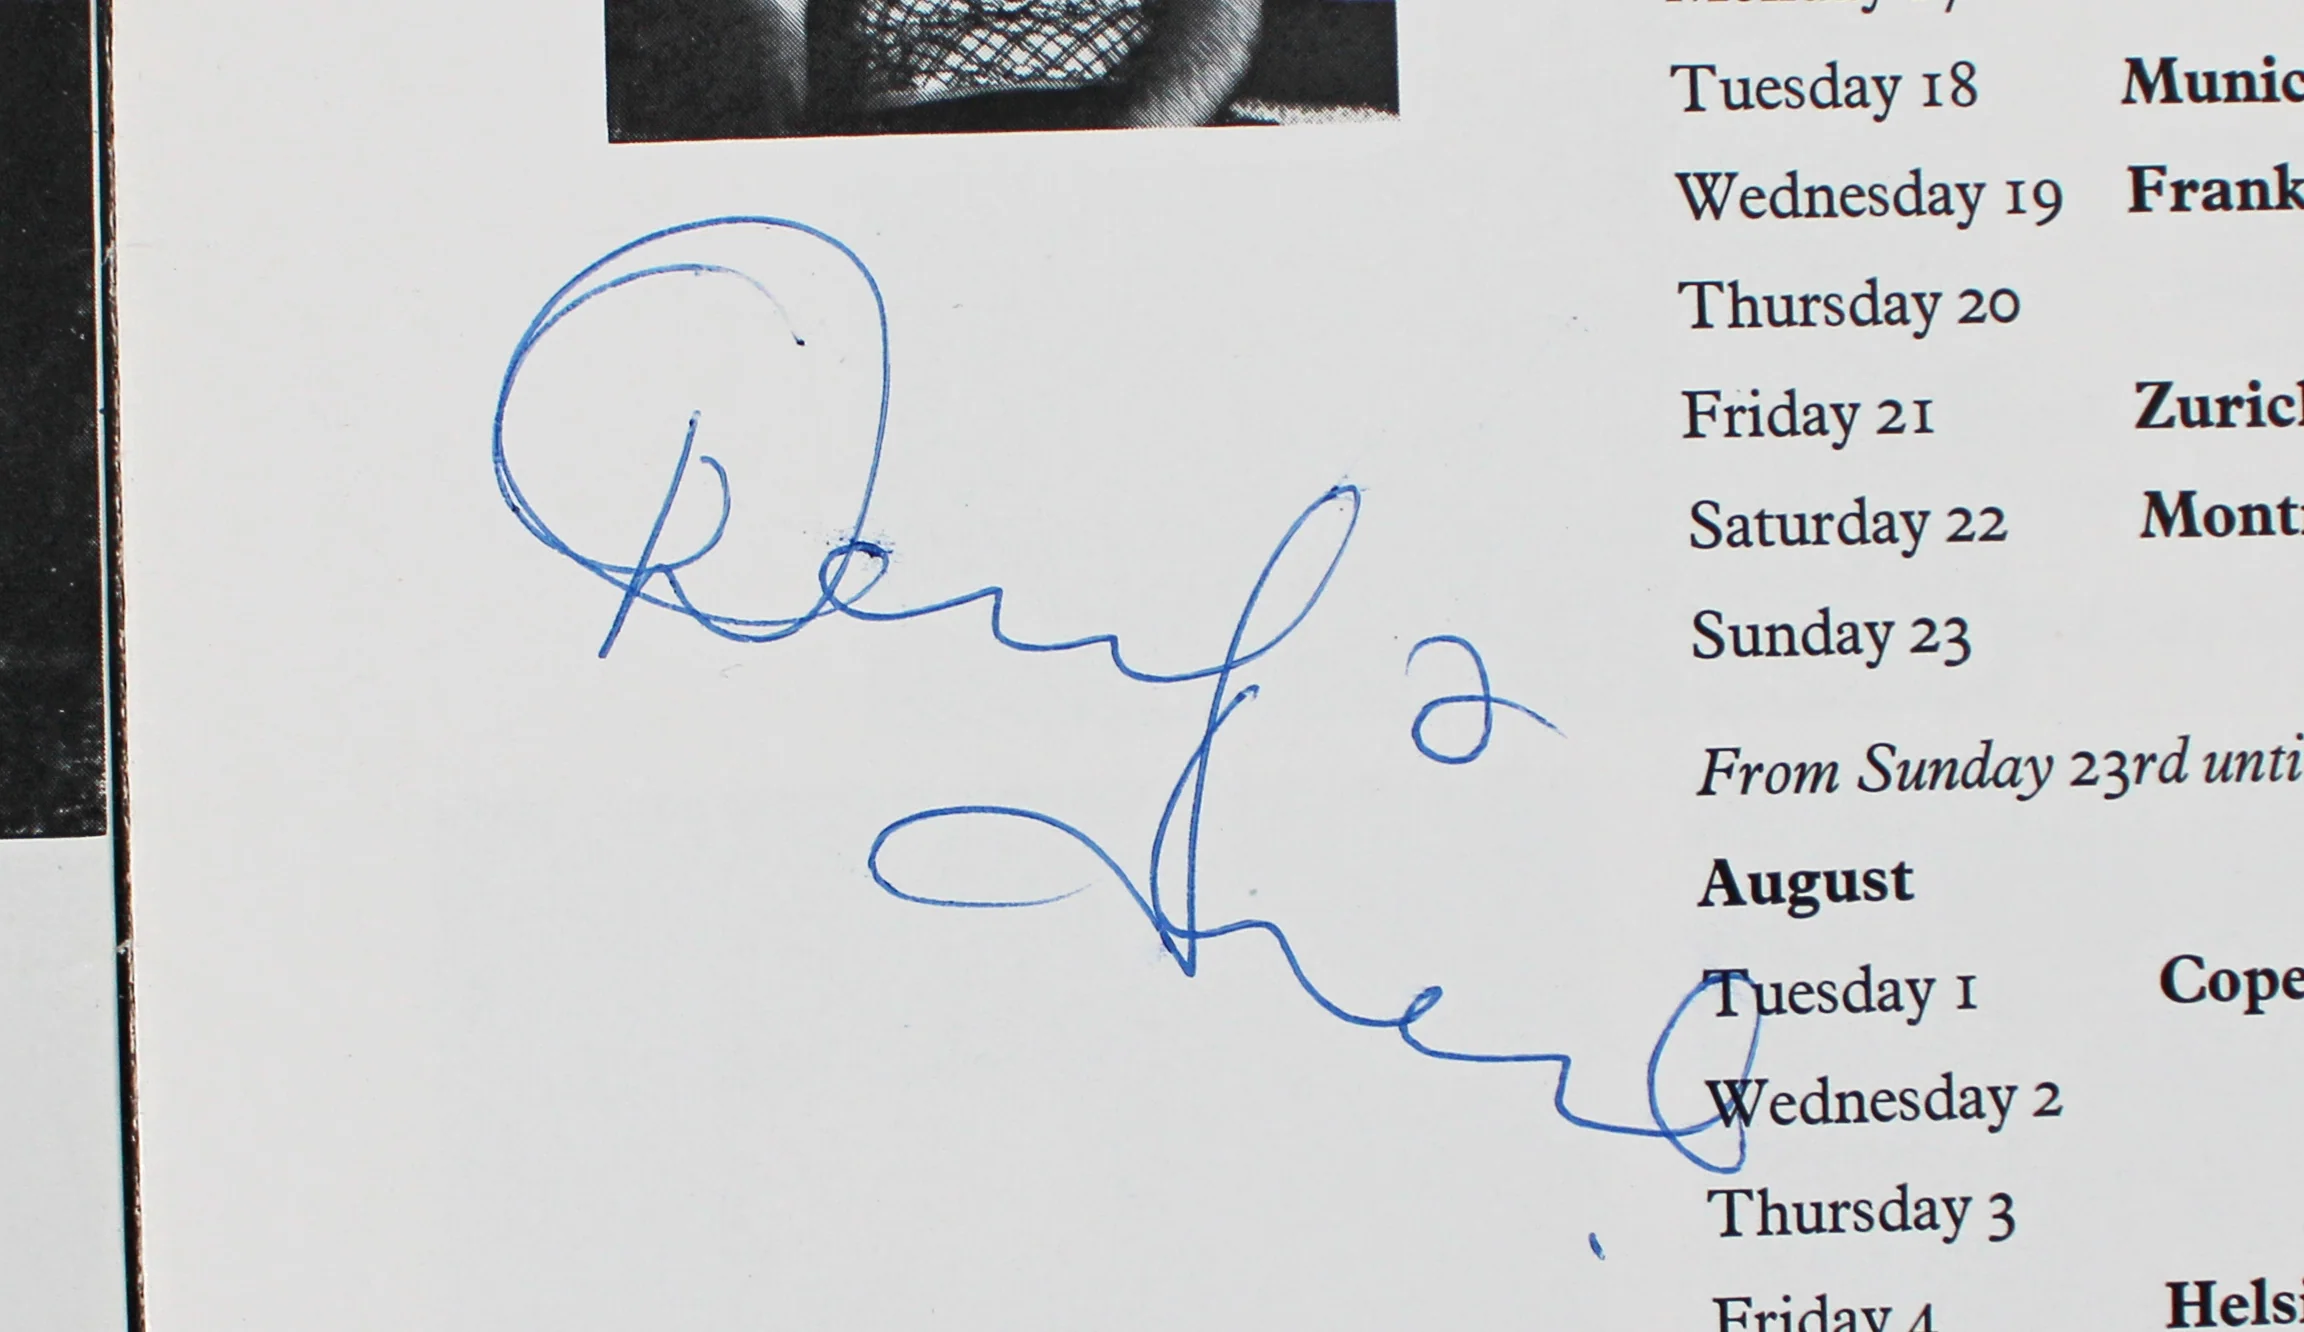 Monday 17
Tuesday 18 Munic
Wednesday 19 Frank
Thursday 20
Friday 21 Zurich
Saturday 22 Montr
Sunday 23
From Sunday 23rd unti
August
Tuesday 1 Cope
Wednesday 2
Thursday 3
Friday 4 Helsi